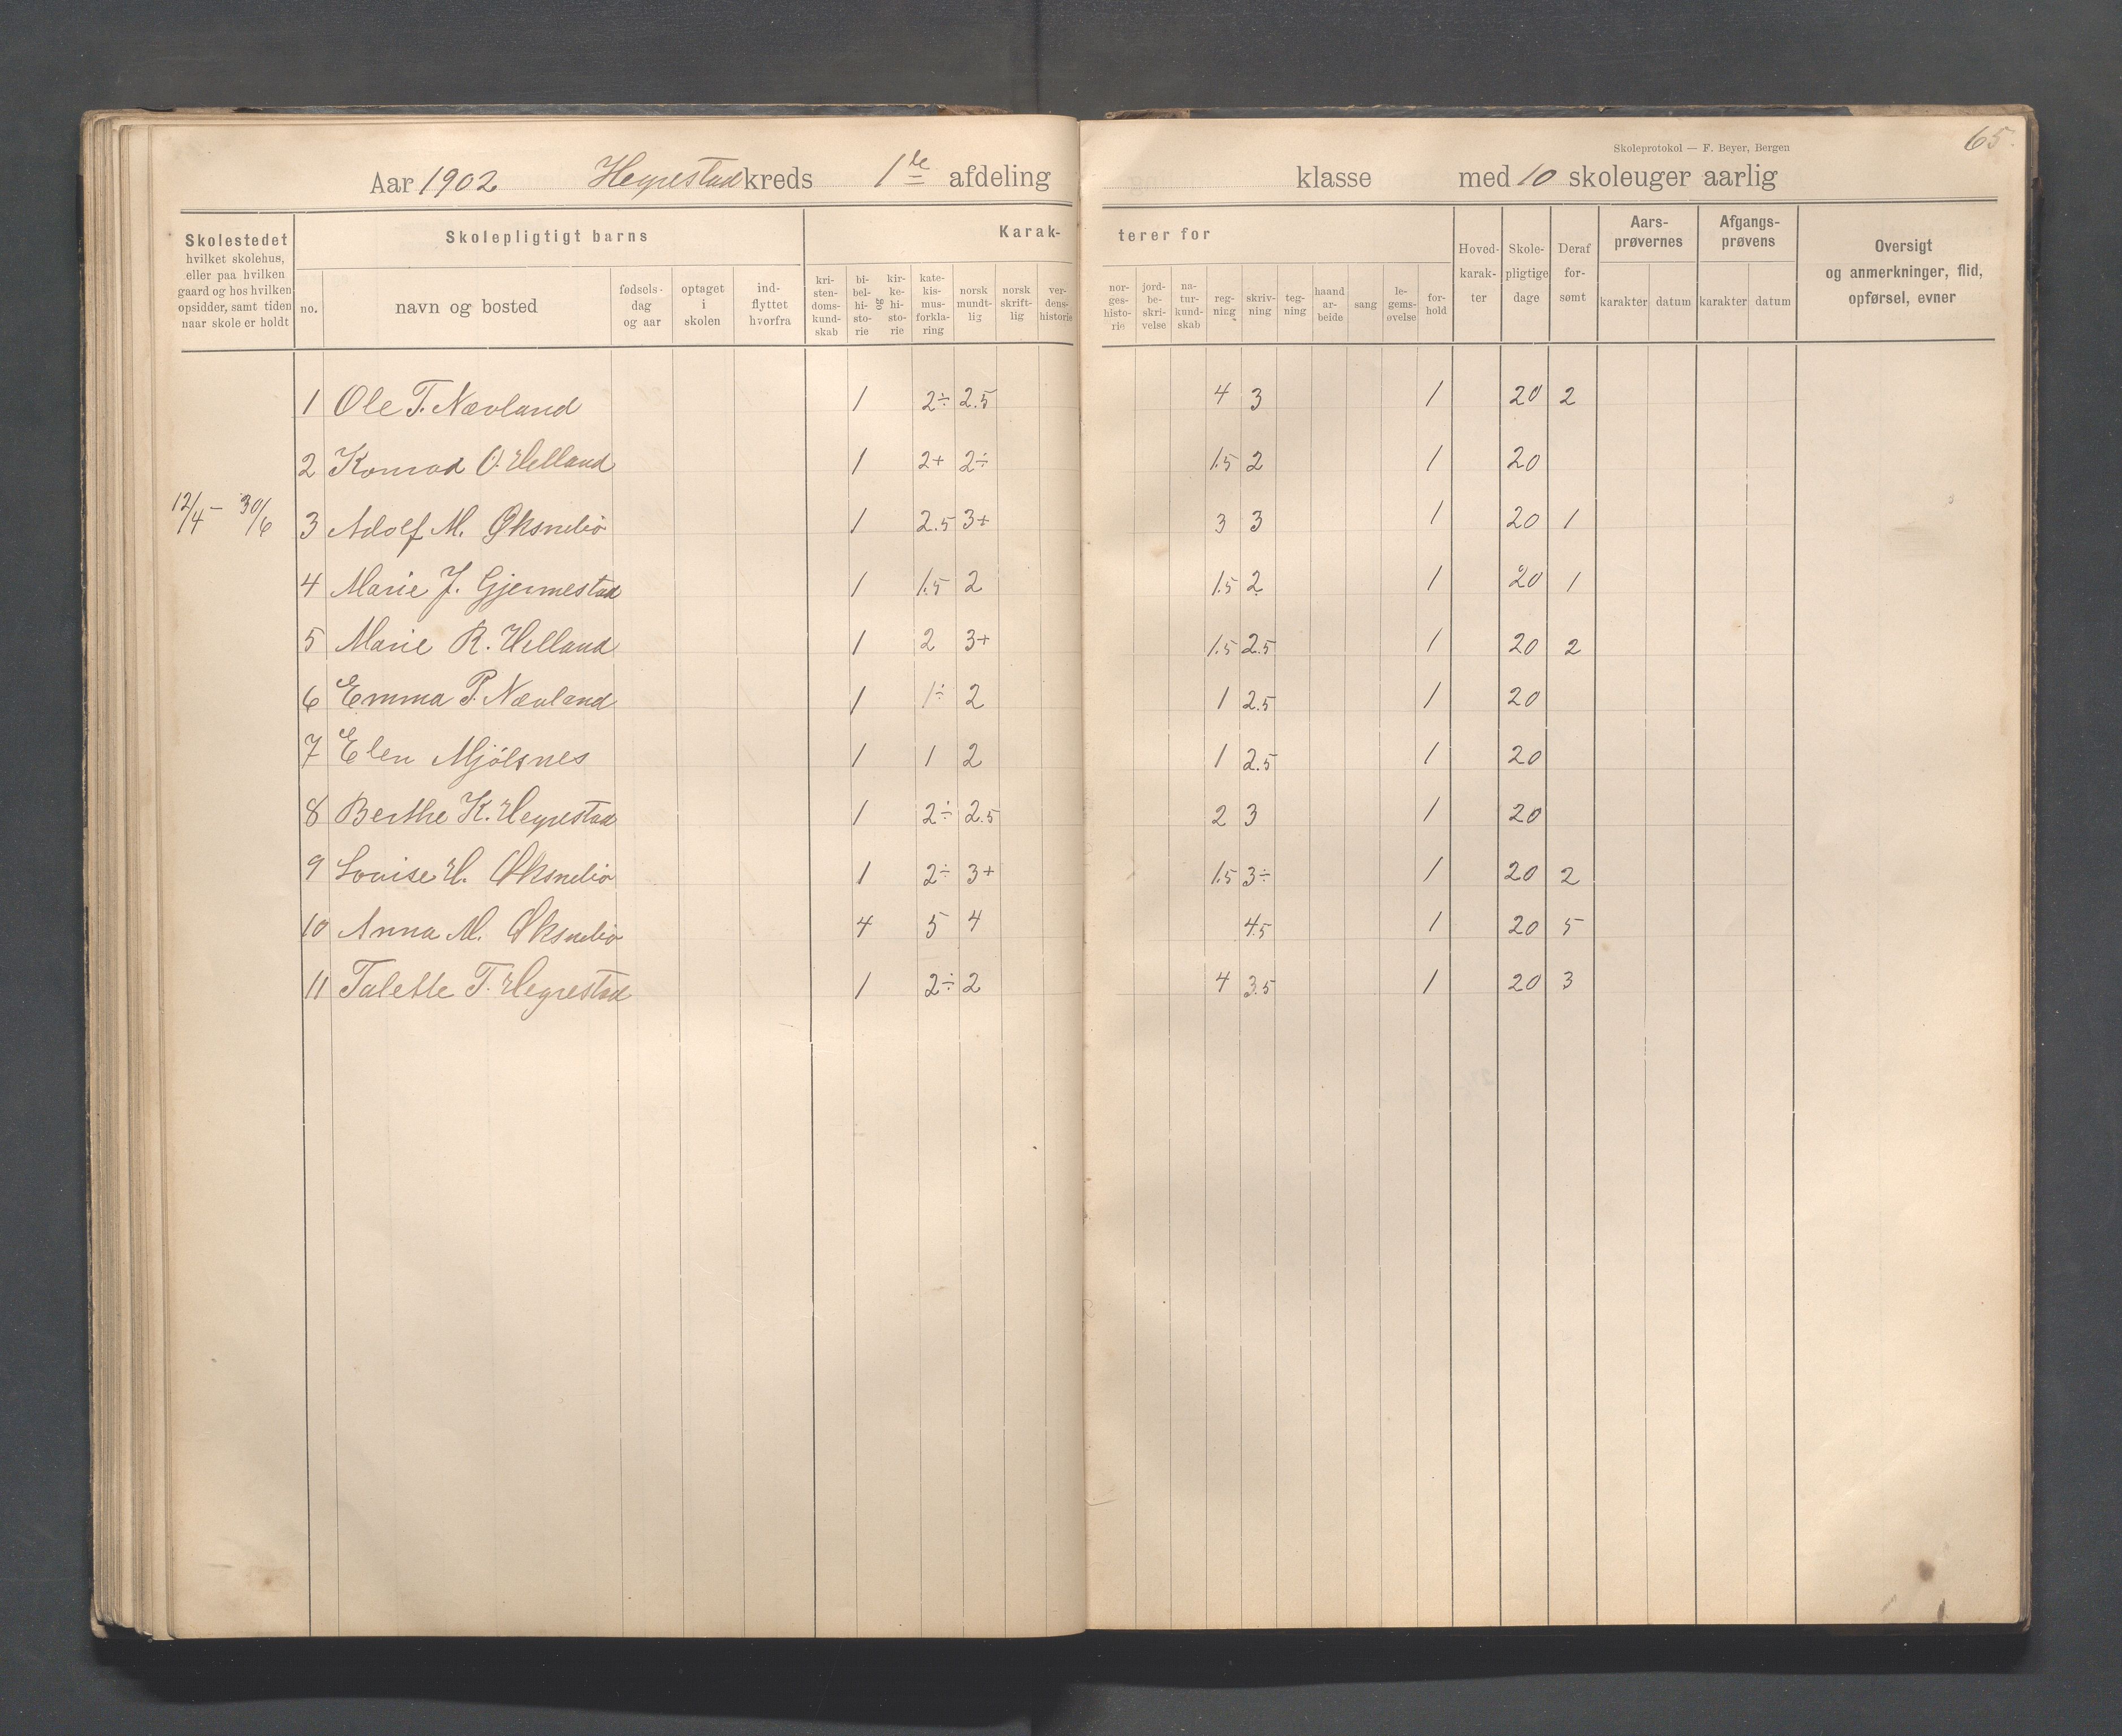 65.
Skoleprotokol — F. Beyer, Bergen
Aar 1902 Hegrestad kreds 1ste afdeling klasse med 10 skoleuger aarlig
Skolestedet hvilket skolehus, eller paa hvilken gaard og hos hvilken opsidder, samt tiden naar skole er holdt
Skolepligtigt barns
no.
navn og bosted
fødsels-dag og aar
optaget i skolen
ind-flyttet hvorfra
Karak-terer for
kri-sten-doms-kund-skab
bi-bel-hi-sto-rie
og
kir-ke-hi-sto-rie
kate-kis-mus-forkla-ring
norsk mundt-lig
norsk skrift-lig
ver-dens-historie
nor-ges-histo-rie
jord-be-skri-velse
na-tur-kund-skab
reg-ning
skriv-ning
teg-ning
haand ar-beide
sang
le-gems-øvelse
for-hold
Hoved-karak-ter
Skole-pligtige dage
Deraf for-sømt
Aars-prøvernes
karakter datum
Afgangs-prøvens
karakter datum
Oversigt og anmerkninger, flid, opførsel, evner
1 Ole T. Nævland 1 2÷ 2.5 4 3 1 20 2
2 Konrad O. Helland 1 2+ 2÷ 1.5 2 1 20
12/4 – 30/6 3 Adolf M. Øksnebiø 1 2.5 3+ 3 3 1 20 1
4 Marie J. Gjermestad 1 1.5 2 1.5 2 1 20 1
5 Marie R. Helland 1 2 3+ 1.5 2.5 1 20 2
6 Emma P. Nævland 1 1÷ 2 1 2.5 1 20
7 Elen Mjølsnes 1 1 2 1 2.5 1 20
8 Berthe K. Hegrestad 1 2÷ 2.5 2 3 1 20
9 Lovise H. Øksnebiø 1 2÷ 3+ 1.5 3÷ 1 20 2
10 Anna M. Øksnebiø 4 5 4 4.5 1 20 5
11 Talette T. Hegrestad 1 2÷ 2 4 3.5 1 20 3